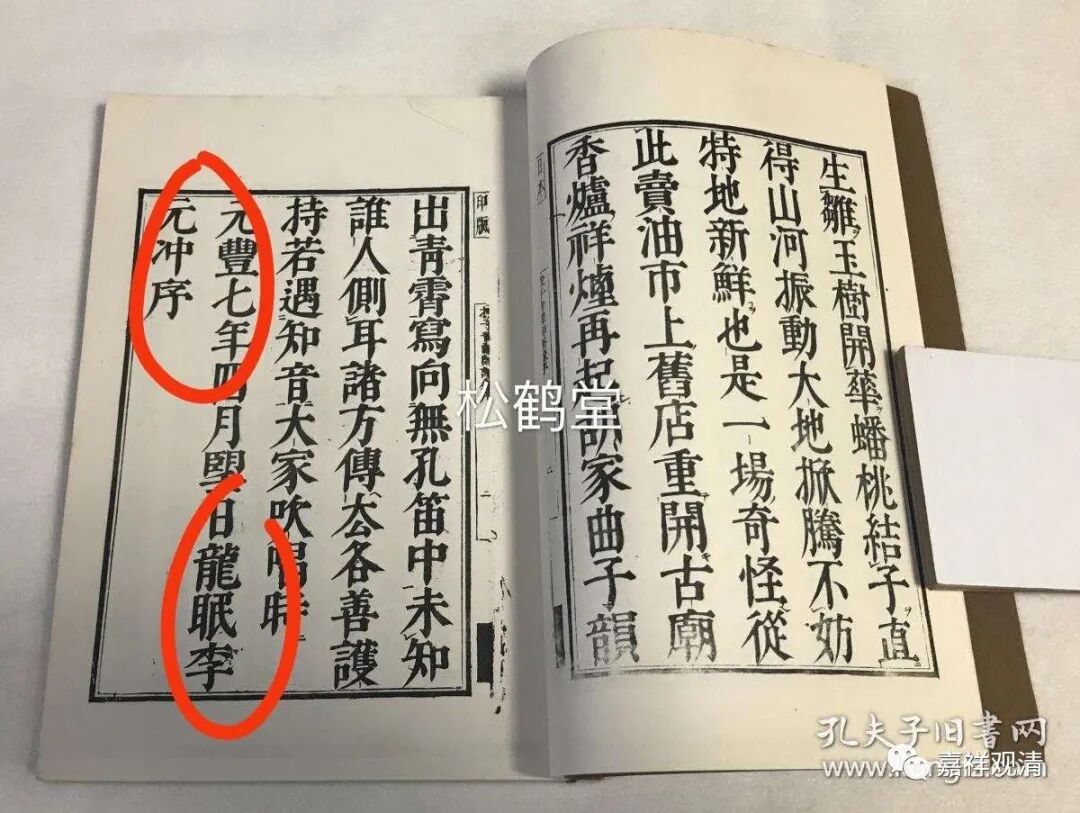 生雛玉樹開華蟠桃結子直
得山河振動大地掀騰不妨
特地新鮮也是一場奇怪從
此賣油市上舊店重開古廟
香爐祥煙再起胡家曲子韻
出青霄寫向無孔笛中未知
誰人側耳諸方傳公各善護
持若遇知音大家吹唱時
元豐七年四月望日龍眠李
元冲序
印版
松鹤堂
孔夫子旧书网
嘉祥观清